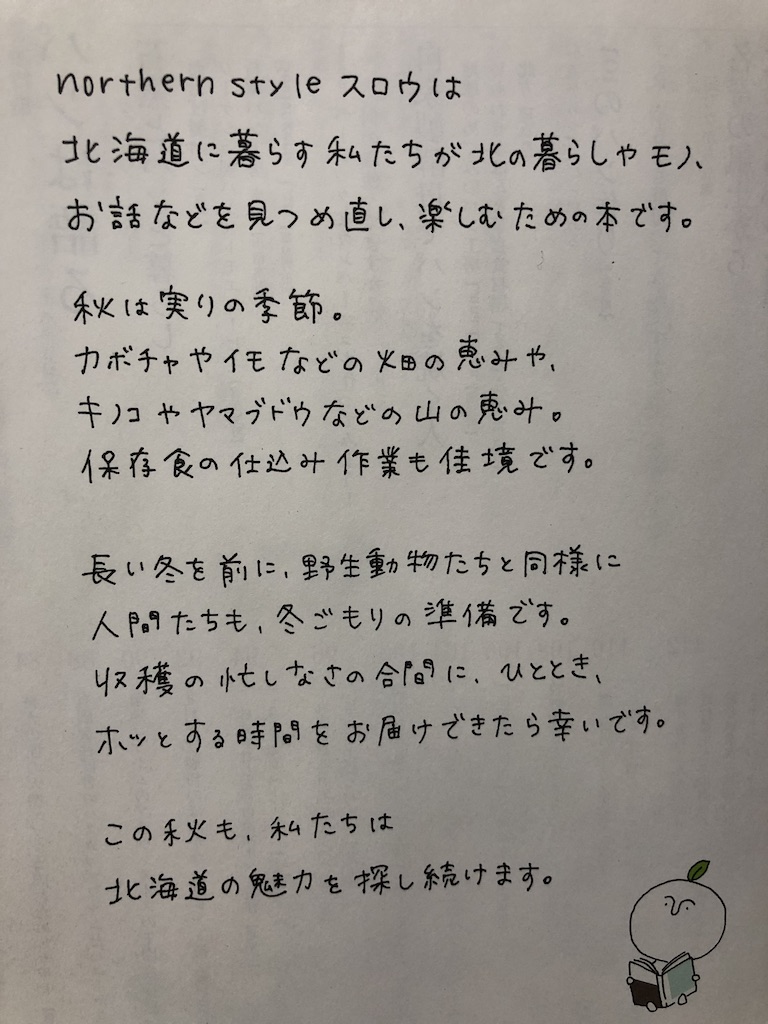 northern style スロウは
北海道に暮らす私たちが北の暮らしやモノ、
お話などを見つめ直し、楽しむための本です。
秋は実りの季節。
カボチャやイモなどの畑の恵みや、
キノコやヤマブドウなどの山の恵み。
保存食の仕込み作業も佳境です。
長い冬を前に、野生動物たちと同様に
人間たちも、冬ごもりの準備です。
収穫の忙しなさの合間に、ひととき、
ホッとする時間をお届けできたら幸いです。
この秋も、私たちは
北海道の魅力を探し続けます。